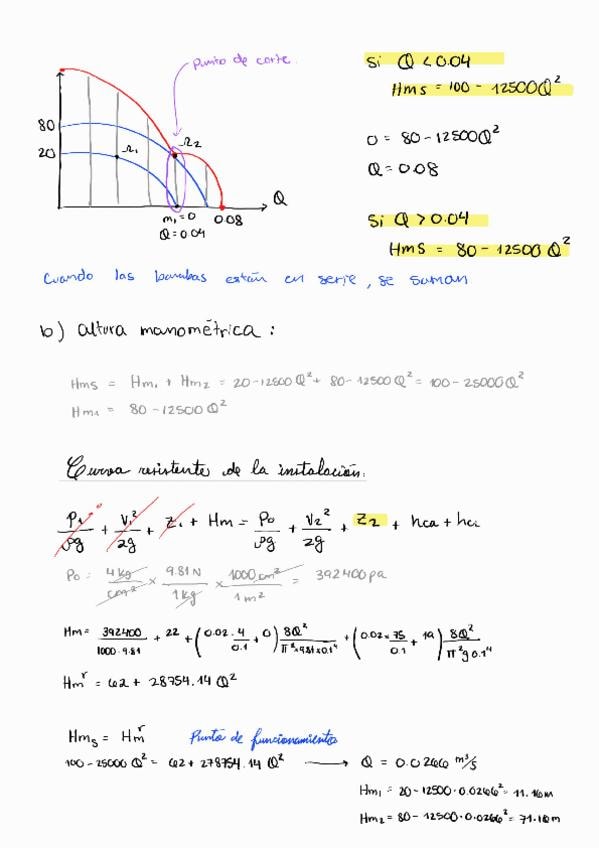 punto de corte.
80
20
Ω1
Ω2
Q
m₁ = 0
Q = 0.04
0.08
Si Q < 0.04
Hms = 100 - 12500Q²
0 = 80 - 12500Q²
Q = 0.08
Si Q > 0.04
Hms = 80 - 12500 Q²
Cuando las bombas están en serie, se suman
b) altura manométrica :
Hms = Hm₁ + Hm₂ = 20 - 12500 Q² + 80 - 12500 Q² = 100 - 25000 Q²
Hm₁ = 80 - 12500 Q²
Curva resistente de la instalación:
P₁/ρg + V₁²/2g + Z₁ + Hm = P₀/ρg + V₂²/2g + Z₂ + hca + hci
P₀ : 4 kg/cm² × 9.81 N/1 kg × 1000 cm²/1 m² = 392400 pa
Hm = 392400/1000·9.81 + 22 + (0.02·4/0.1 + 0) 8Q²/π²×9.81×0.1⁴ + (0.02×75/0.1 + 19) 8Q²/π²g 0.1⁴
Hmʳ = 62 + 28754.14 Q²
Hms = Hmʳ Punto de funcionamiento
100 - 25000 Q² = 62 + 278754.14 Q² → Q = 0.0266 m³/s
Hm₁ = 20 - 12500 · 0.0266² = 11.16 m
Hm₂ = 80 - 12500 · 0.0266² = 71.16 m